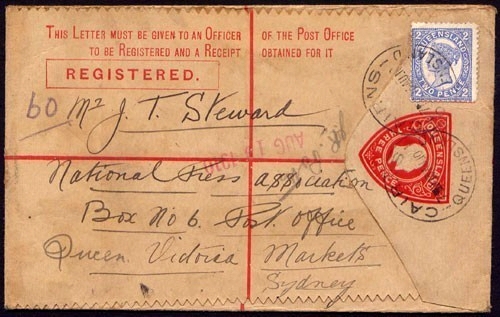 THIS LETTER MUST BE GIVEN TO AN OFFICER OF THE POST OFFICE
TO BE REGISTERED AND A RECEIPT OBTAINED FOR IT
REGISTERED.
60
Mr J. T. Steward
AUG 13 1910
National Press Association
Box No 6. Post Office
Queen Victoria Markets
Sydney
2 QUEENSLAND 2
2 TWO PENCE 2
QUEENSLAND
THREE PENCE
CAIRNS
QUEENSLAND